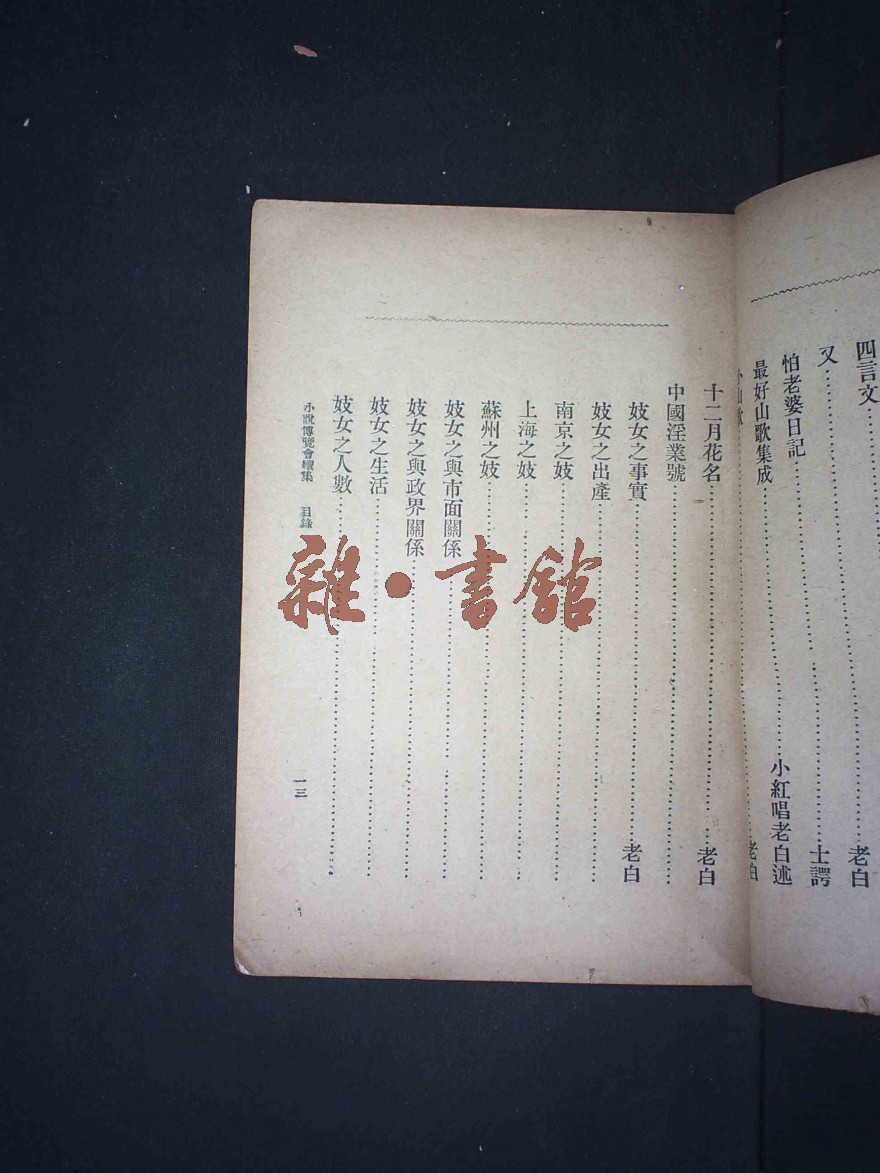 四言文
老白
又
士諤
怕老婆日記
最好山歌集成
小紅唱老白述
小山歌
老白
十二月花名
老白
中國淫業號
妓女之事實
老白
妓女之出產
南京之妓
上海之妓
蘇州之妓
妓女之與市面關係
妓女之與政界關係
妓女之生活
妓女之人數
小說博覽會續集 目錄
一三
雜·書館